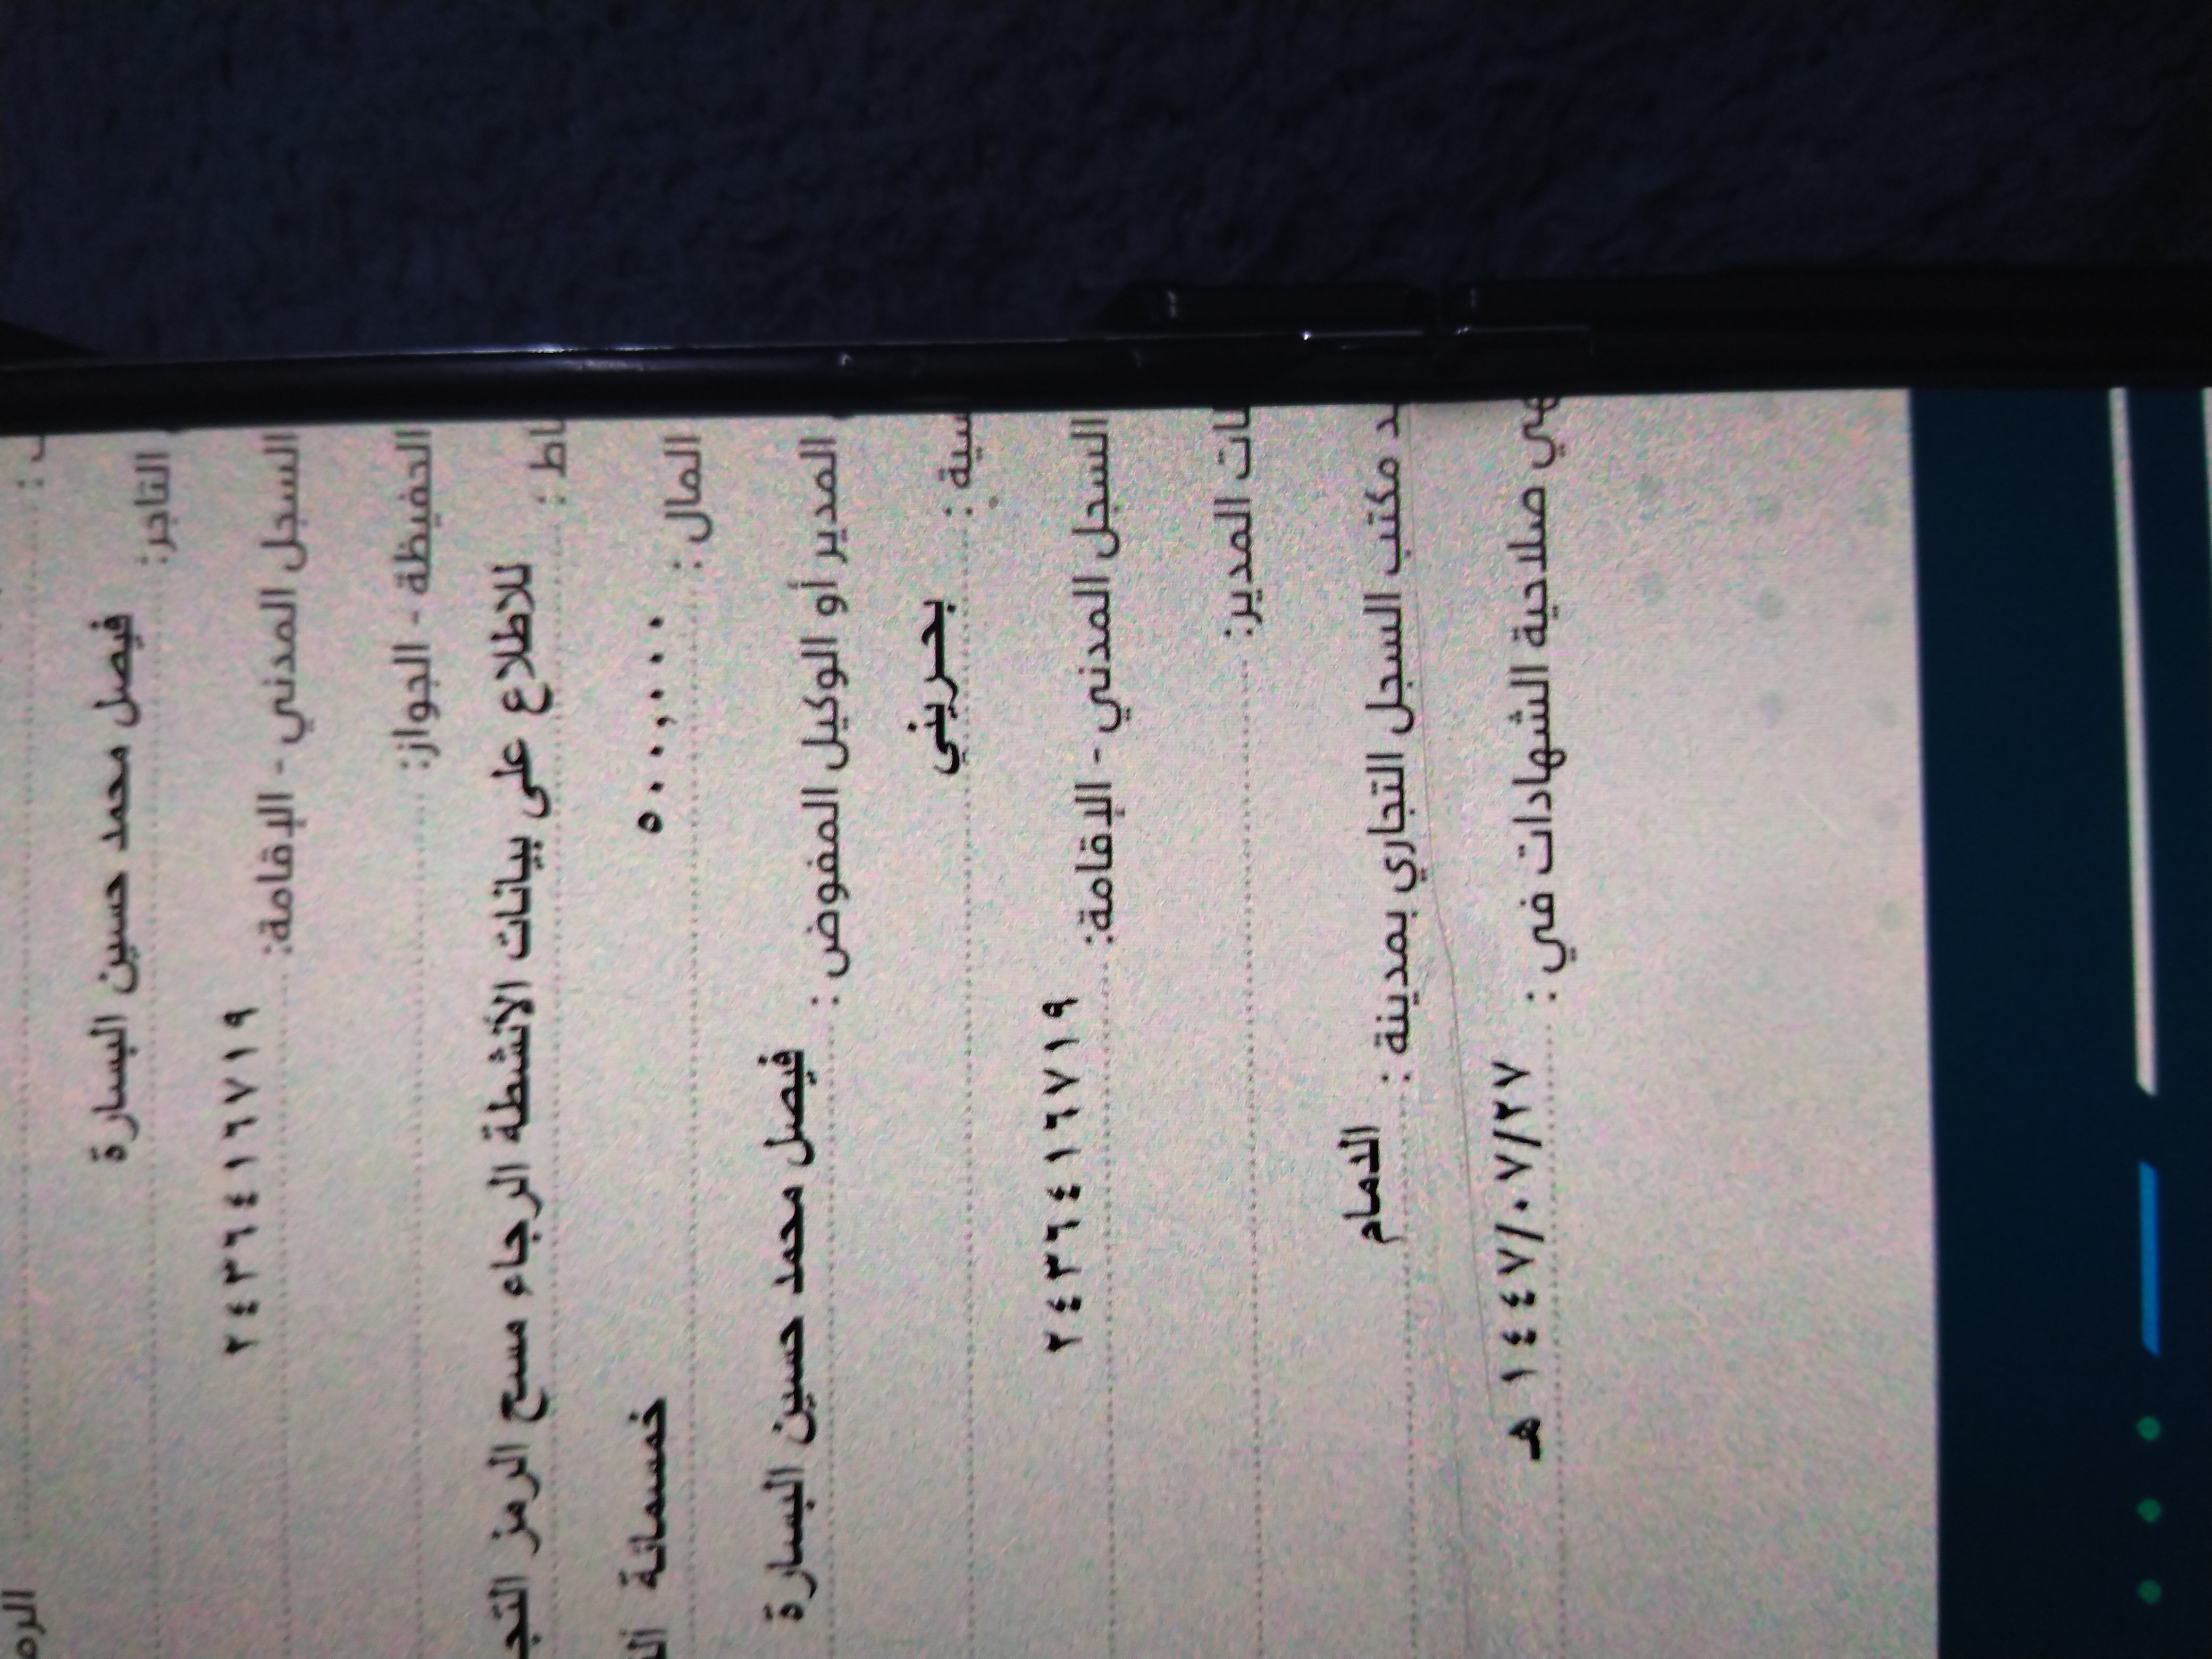 التاجر: فيصل محمد حسين البسارة
السجل المدني - الإقامة: ٢٤٣٦٤١٦٧١٩
الحفيظة - الجواز:
للاطلاع على بيانات الأنشطة الرجاء مسح الرمز
المال : ٥٠٠,٠٠٠ خمسمائة
المدير أو الوكيل المفوض : فيصل محمد حسين البسارة
بحريني
السجل المدني - الإقامة: ٢٤٣٦٤١٦٧١٩
المدير:
مكتب السجل التجاري بمدينة : الدمام
صلاحية الشهادات في : ١٤٤٧/٠٧/٢٧ هـ